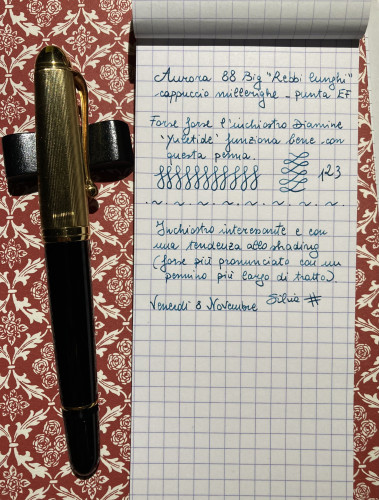 Aurora 88 Big "Rebbi lunghi"
cappuccio millerighe - punta EF
Forse forse l'inchiostro Diamine
"Yuletide" funziona bene con
questa penna.
123
Inchiostro interessante e con
una tendenza allo shading
(forse più pronunciato con un
pennino più largo di tratto).
Venerdì 8 Novembre Silvia